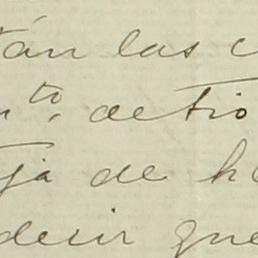 tán las c
n to, de tio
ja de h
decir que